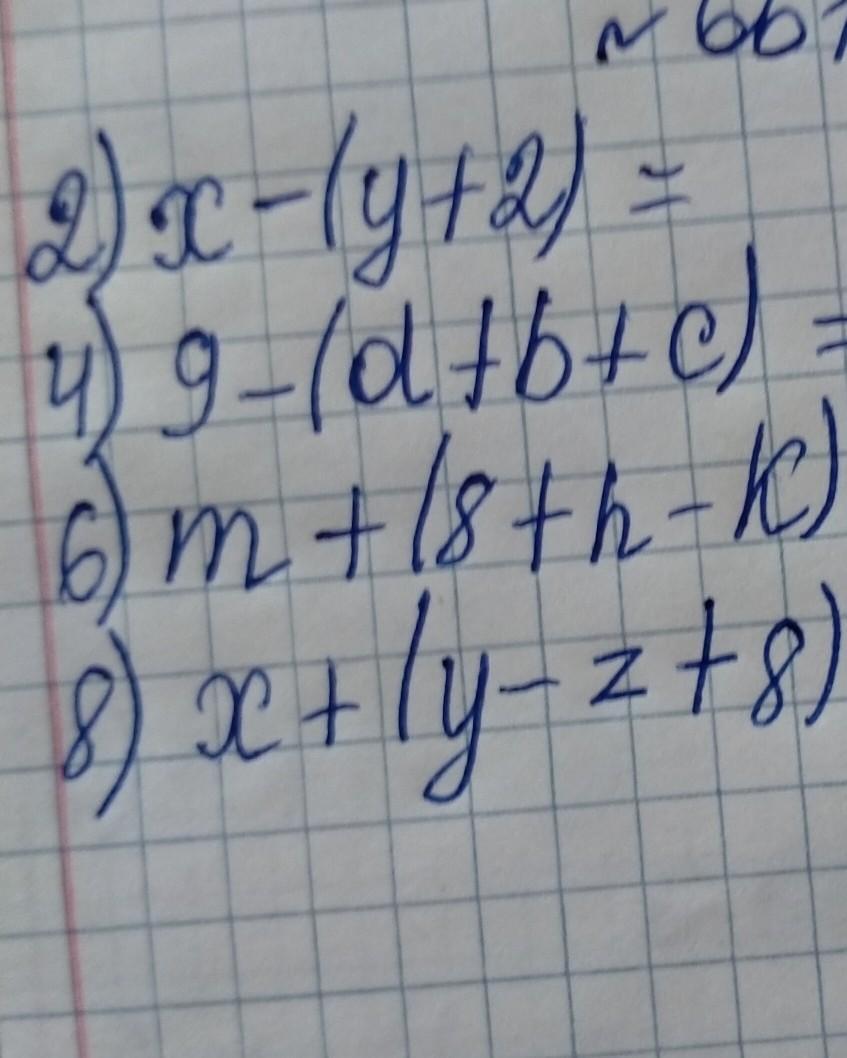 ~ 661
2) x - (y + 2) =
4) 9 - (a + b + c) =
6) m + (8 + n - k)
8) x + (y - z + 8)